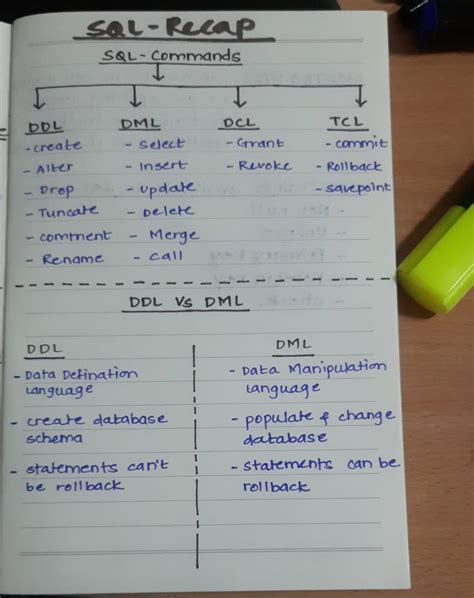 SQL-Recap
SQL-Commands
DDL DML DCL TCL
-create - select -Grant -commit
-Alter - Insert -Revoke -Rollback
-Drop -update -savepoint
-Tuncate -Delete
-comment - Merge
-Rename - call
DDL Vs DML
DDL
-Data Defination
language
-create database
schema
-statements can't
be rollback
DML
- Data Manipulation
language
- populate & change
database
-statements can be
rollback